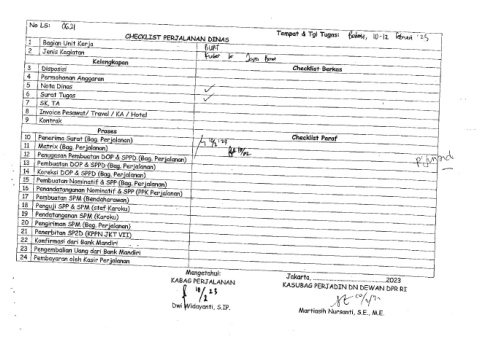 No LS: 0621
Tempat & Tgl Tugas: 10-12 Februari '23
CHECKLIST PERJALANAN DINAS
1 Bagian Unit Kerja BURT
2 Jenis Kegiatan Kunker ke
Kelengkapan Checklist Berkas
3 Disposisi
4 Permohonan Anggaran
5 Nota Dinas ✓
6 Surat Tugas ✓
7 SK, TA
8 Invoice Pesawat/ Travel / KA / Hotel
9 Kontrak
Proses Checklist Paraf
10 Penerima Surat (Bag. Perjalanan)
11 Matrix (Bag. Perjalanan)
12 Penugasan Pembuatan DOP & SPPD (Bag. Perjalanan)
13 Pembuatan DOP & SPPD (Bag. Perjalanan)
14 Koreksi DOP & SPPD (Bag. Perjalanan)
15 Pembuatan Nominatif & SPP (Bag. Perjalanan)
16 Penandatanganan Nominatif & SPP (PPK Perjalanan)
17 Pembuatan SPM (Bendaharawan)
18 Penguji SPP & SPM (staf Karoku)
19 Pendatanganan SPM (Karoku)
20 Pengiriman SPM (Bag. Perjalanan)
21 Penerbitan SP2D (KPPN JKT VII)
22 Konfirmasi dari Bank Mandiri
23 Pengembalian Uang dari Bank Mandiri
24 Pembayaran oleh Kasir Perjalanan
Mengetahui:
KABAG PERJALANAN
Dwi Widayanti, S.IP.
Jakarta, 2023
KASUBAG PERJADIN DN DEWAN DPR RI
Martiasih Nursanti, S.E., M.E.